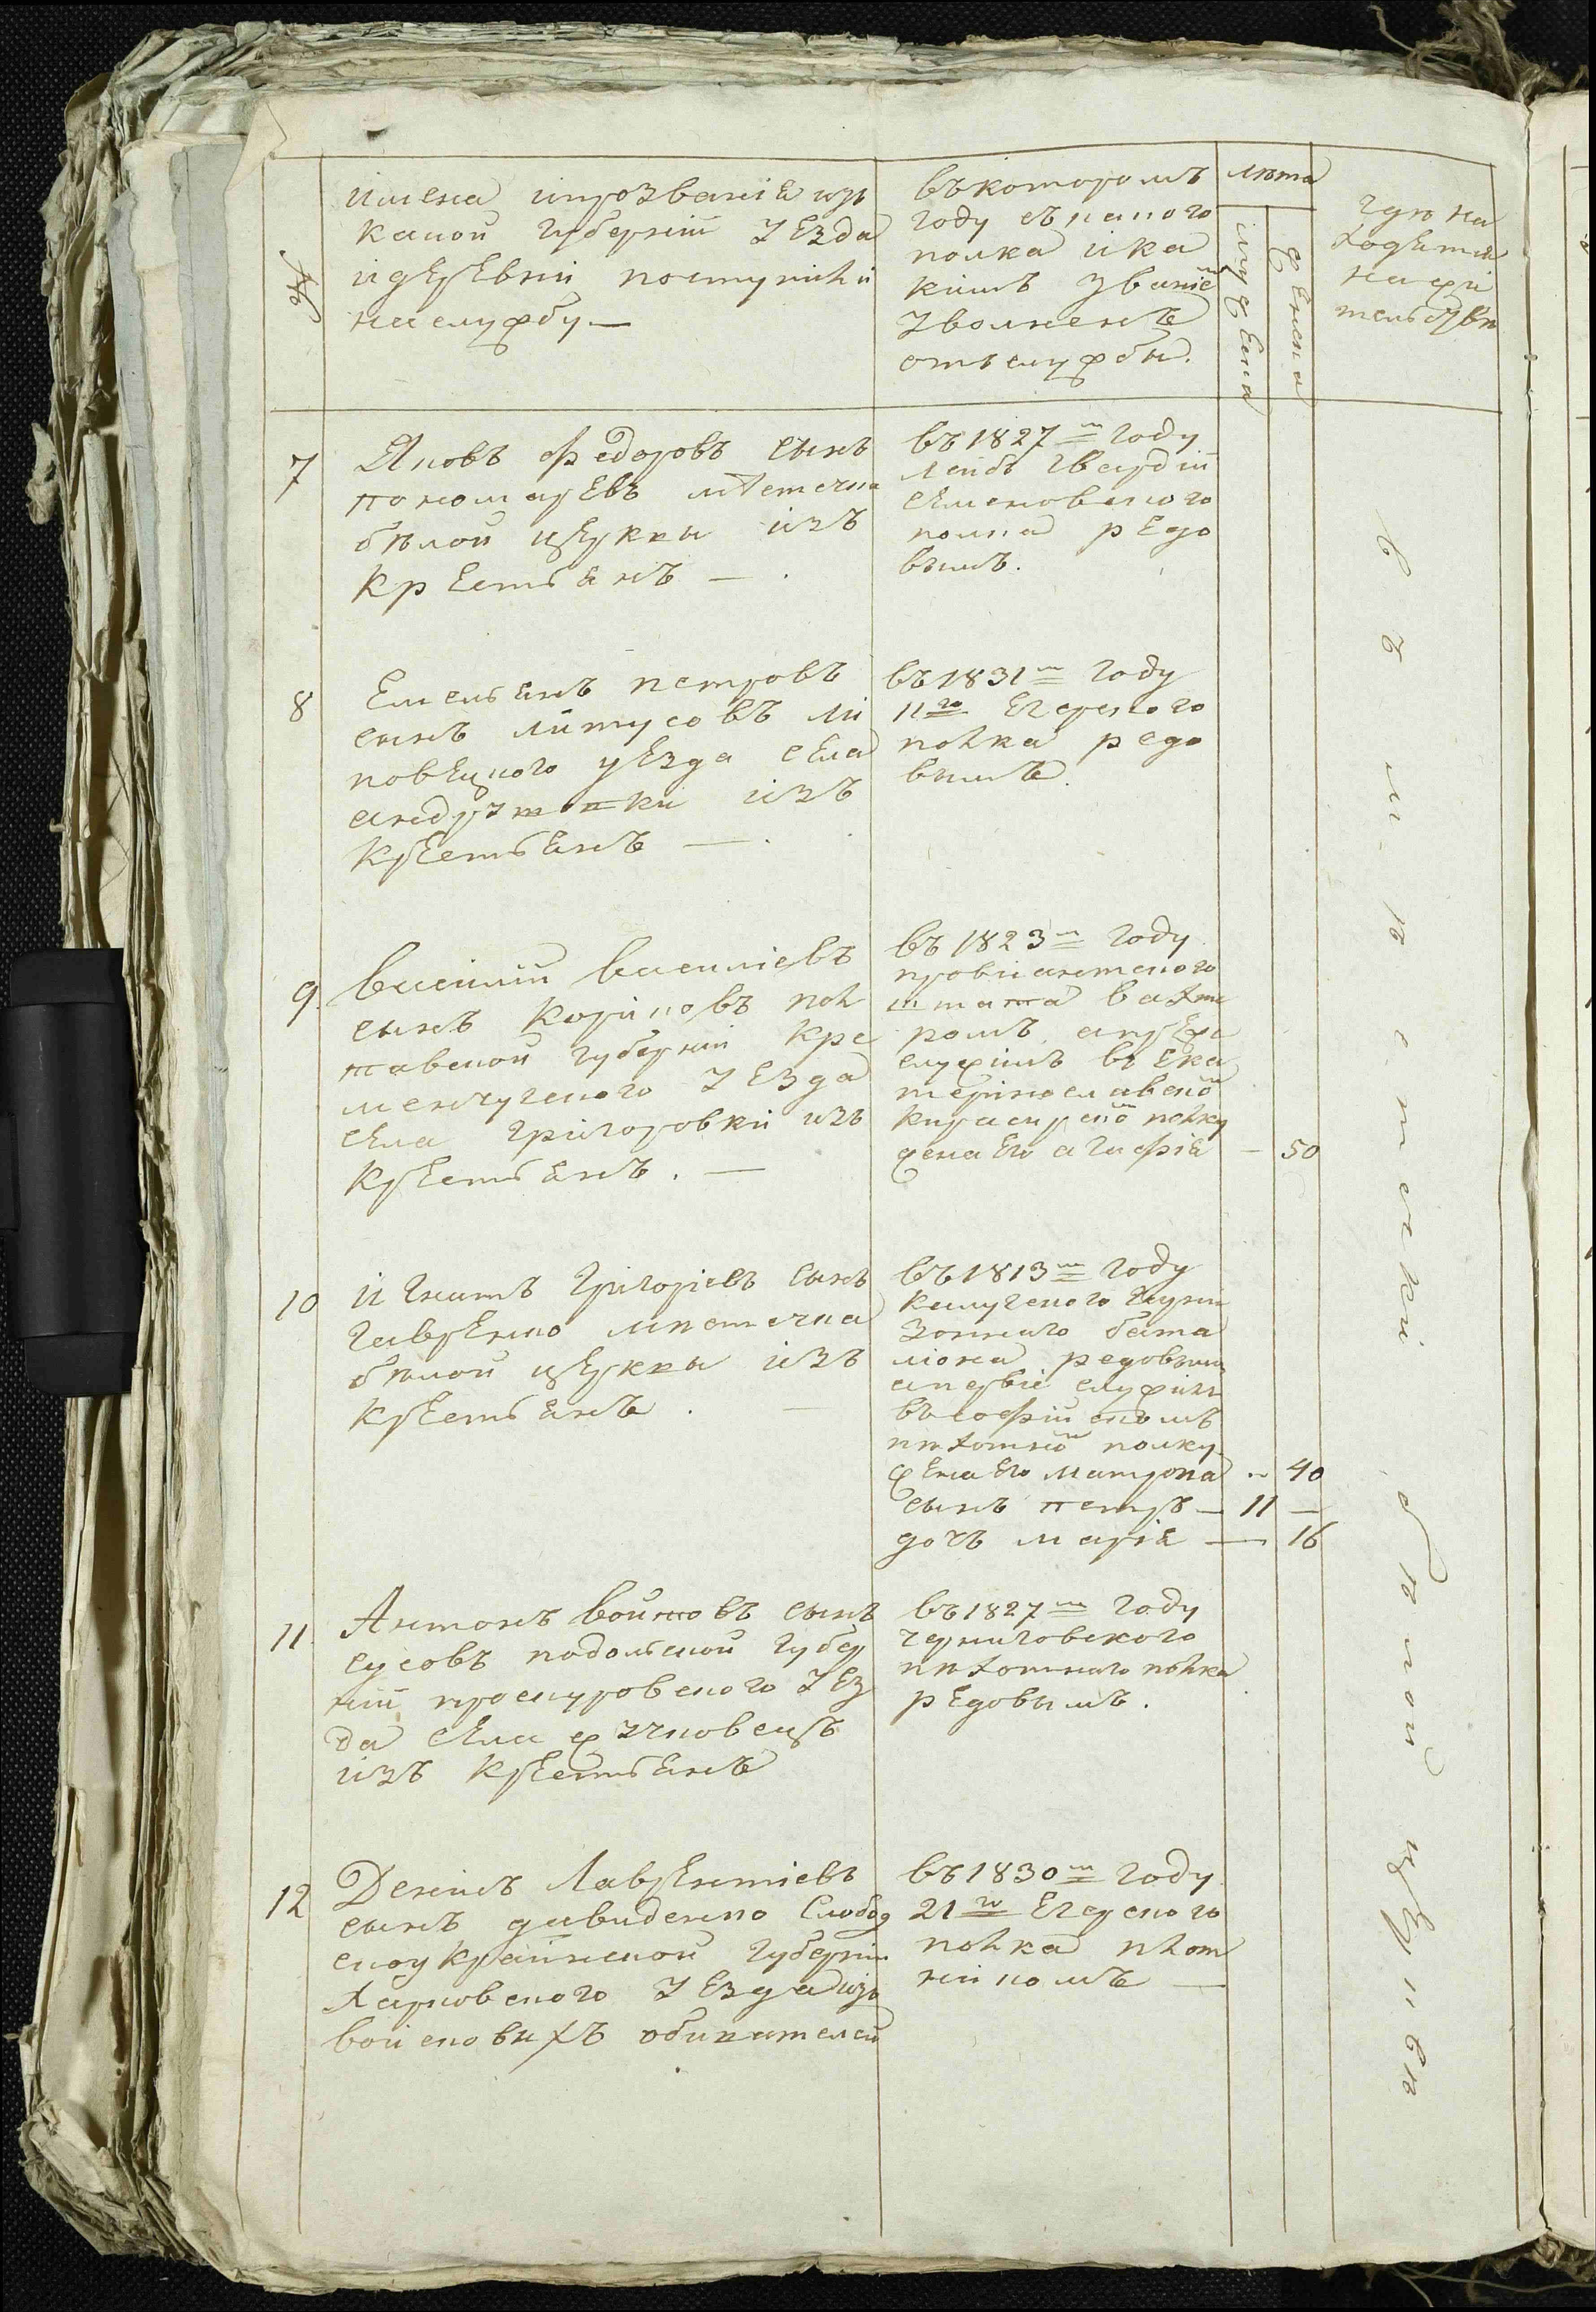 №
имена ипрозванiя изъ
какой губернiй уезда
идеревни поступилъ и
наслужбу. —
въкоторомъ
году съкакого
полка ика
кимъ званiе
уволненъ
отъслужбы.
лѣта
мужеска
женска
гдѣ на
ходится
нажи
тельствѣ
7
Яковъ Федоровъ сынъ
пономаревъ мѣстечка
бѣлой церквы изъ
крестьянъ — .
въ 1827 м году
лейбъ гвардiй
семеновского
полка редо
вымъ.
8
Емельянъ петровъ
сынъ литусовъ ли
повецкого уезда села
андрушокки изъ
крестьянъ — .
въ 1831 м году
11 го Егерского
полка редо
вымъ.
9.
василiй василiевъ
сынъ кориковъ пол
тавской губернiи кре
менчугского уезда
села григоровки изъ
крестьянъ. —
въ 1823 м году
провиантского
штата вахте
ромъ, апреже
служилъ въ Ека
теринославско
кирасирско полку
жена Его агафiя — 50
10
игнатъ григорiевъ сынъ
гавренко мѣстечка
бѣлой церквы изъ
крестьянъ . —
въ 1813 м году
калугского гарни
зонного бата
лiона редовымъ
апервiе служилъ
въсофiйскомъ
пѣхотно полку
жена Его матрона — 40
сынъ петръ — 11 —
дочъ марiя — 16
11.
Антонъ войтовъ сынъ
сусовъ подольской губер
нiи проскуровского уез
да села
изъ крестьянъ
въ 1827 м году
черниговского
пѣхотного полка
редовымъ.
12
Денисъ Лаврентiевъ
сынъ давиденко Слобод
скоукраинской губернiи
харковского уезда изъ
войсковихъ обивателей
въ 1830 м году
21 го Егерского
полка плот
никомъ —
въ мѣстечки бѣлой церквѣ